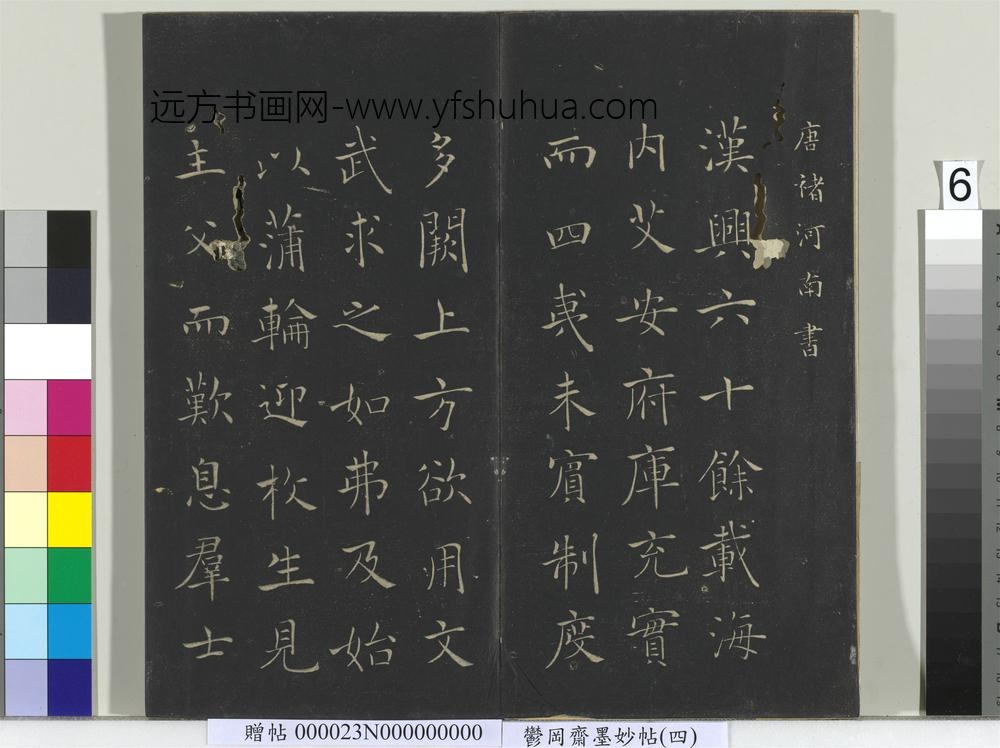 远方书画网-www.yfshuhua.com
唐褚河南書
漢興六十餘載海
内艾安府庫充實
而四夷未賓制度
多闕上方欲用文
武求之如弗及始
以蒲輪迎枚生見
主父而歎息羣士
6
贈帖 000023N000000000
鬱岡齋墨妙帖(四)